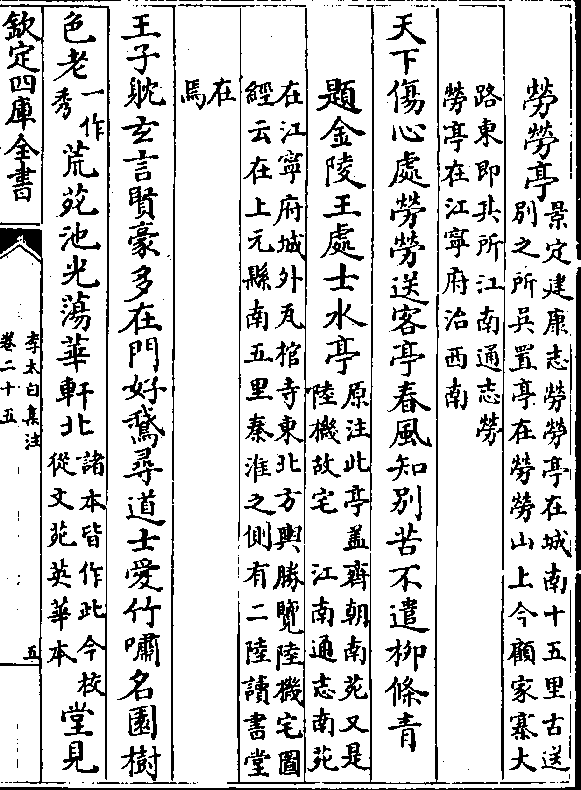 勞勞亭景定建康志勞勞亭在城南十五里古送
別之所吳置亭在勞勞山上今顧家寨大
路東即其所江南通志勞
勞亭在江寧府治西南
天下傷心處勞勞送客亭春風知別苦不遣柳條青
題金陵王處士水亭原注此亭蓋齊朝南苑又是
陸機故宅 江南通志南苑
在江寧府城外瓦棺寺東北方輿勝覽陸機宅圖
經云在上元縣南五里秦淮之側有二陸讀書堂
在
焉
王子耽玄言賢豪多在門好鵞尋道士愛竹嘯名園樹
色老一作
秀荒苑池光蕩華軒北諸本皆作此今校
從文苑英華本堂見
欽定四庫全書
李太白集注
卷二十五
五